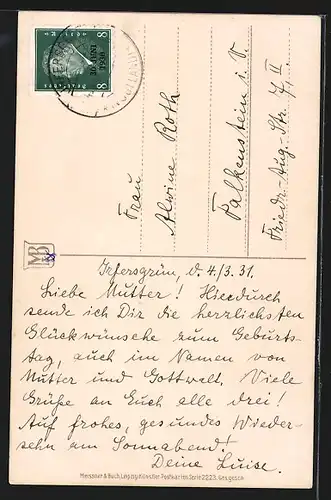 8
30. JUNI
1930
8
Frau
Alwine Roth
Falkenstein i. V.
Friedr.-Aug.-Str. 7, II
MB
Irfersgrün, d. 4./3. 31.
Liebe Mutter! Hierdurch
sende ich Dir die herzlichsten
Glückwünsche zum Geburts-
tag, auch im Namen von
Mutter und Gottwalt. Viele
Grüße an Euch alle drei!
Auf frohes, gesundes Wieder-
sehn am Sonnabend!
Deine Luise.
Meissner & Buch, Leipzig Künstler-Postkarten Serie 2223. Ges. gesch.